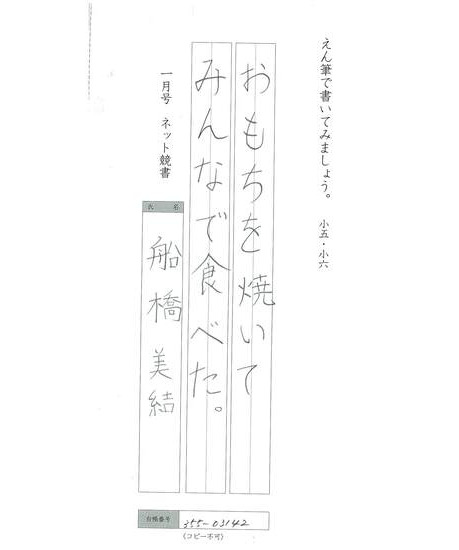 えん筆で書いてみましょう。 小五・小六
おもちを焼いて
みんなで食べた。
一月号 ネット競書
氏名
船橋美結
台帳番号 355-03142
(コピー不可)